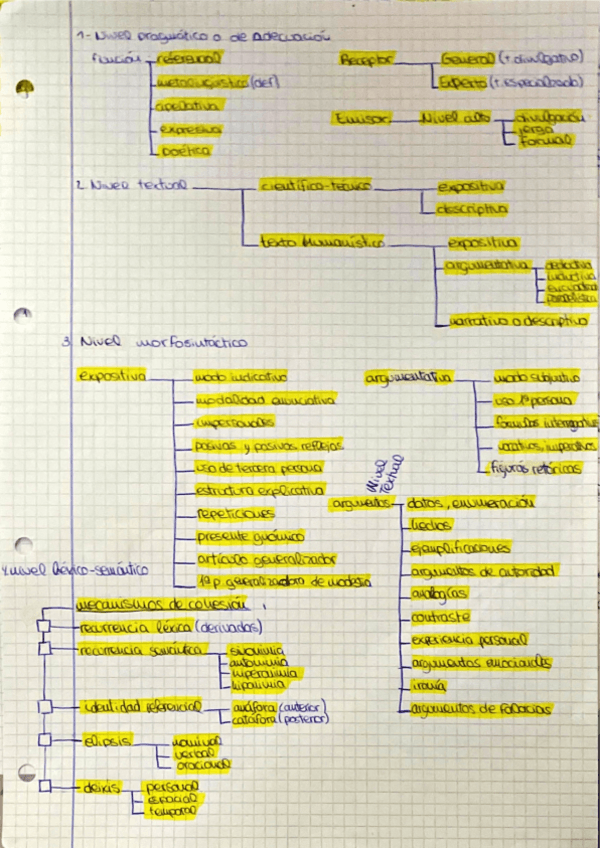 1- Nivel pragmático o de adecuación
función referencial
metalingüística (def)
apelativa
expresiva
poética
Receptor General (+ divulgativo)
Experto (+ especializado)
Emisor Nivel alto divulgación
jerga
Formal
2. Nivel textual científico-técnico expositiva
descriptiva
texto humanístico expositiva
argumentativa deductiva
inductiva
encuadrada
paralelística
narrativo o descriptivo
3. Nivel morfosintáctico
expositiva modo indicativo
modalidad enunciativa
impersonales
pasivas y pasivas reflejas
uso de tercera persona
estructura explicativa
repeticiones
presente gnómico
artículo generalizador
1ª p generalizadora de modestia
argumentativa modo subjuntivo
uso 1ª persona
formulas interrogativas
vocativos, imperativos
figuras retóricas
Nivel
Textual
argumentos datos, enumeración
hechos
ejemplificaciones
argumentos de autoridad
analogías
contraste
experiencia personal
argumentos emocionales
ironía
argumentos de falacias
4. nivel léxico-semántico
mecanismos de cohesión
recurrencia léxica (derivados)
recurrencia semántica sinonimia
antonimia
hiperonimia
hiponimia
identidad referencial anáfora (anterior)
catáfora (posterior)
elipsis nominal
verbal
oracional
deixis personal
espacial
temporal